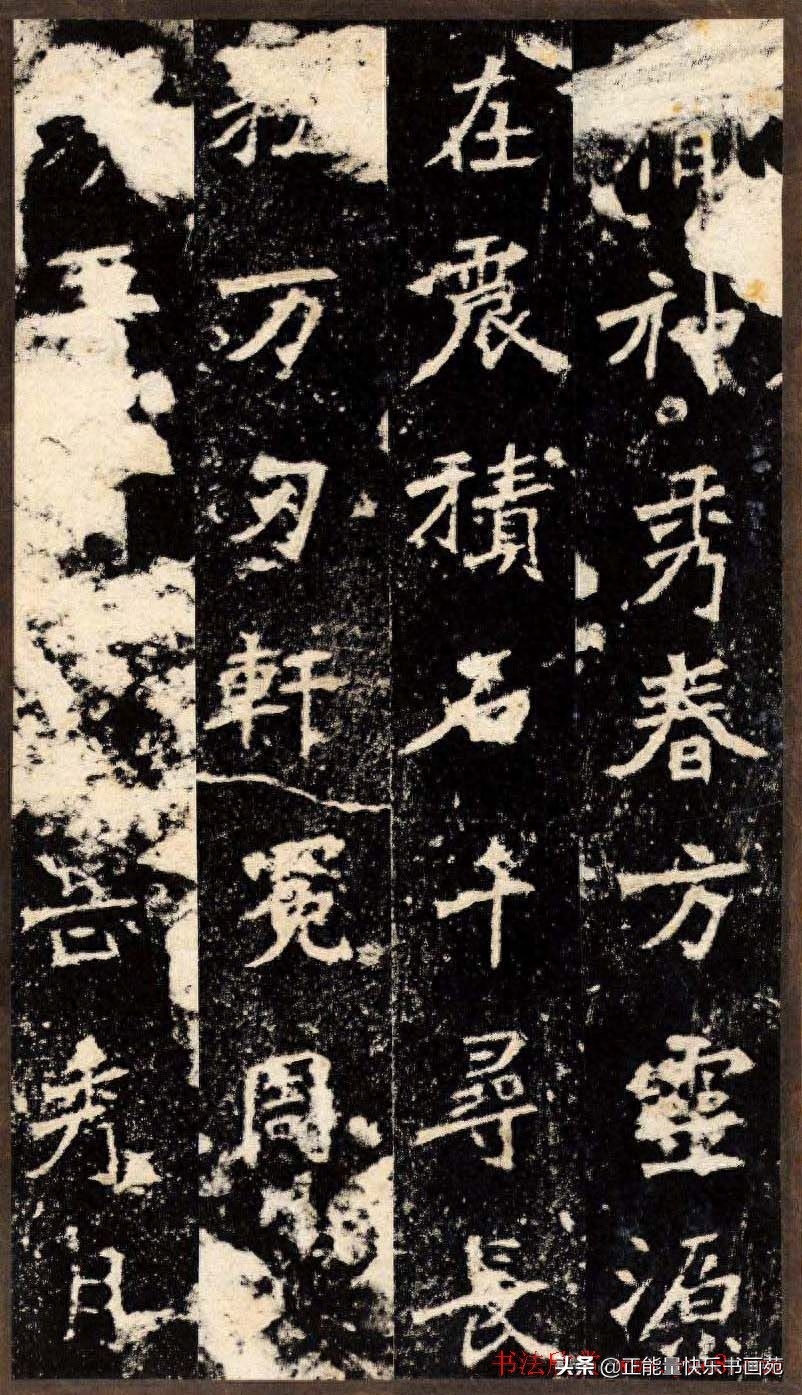 神秀春方靈源
在震積石千尋長
松万刃軒冕周
岳秀月
书法
头条 @正能量快乐书画苑